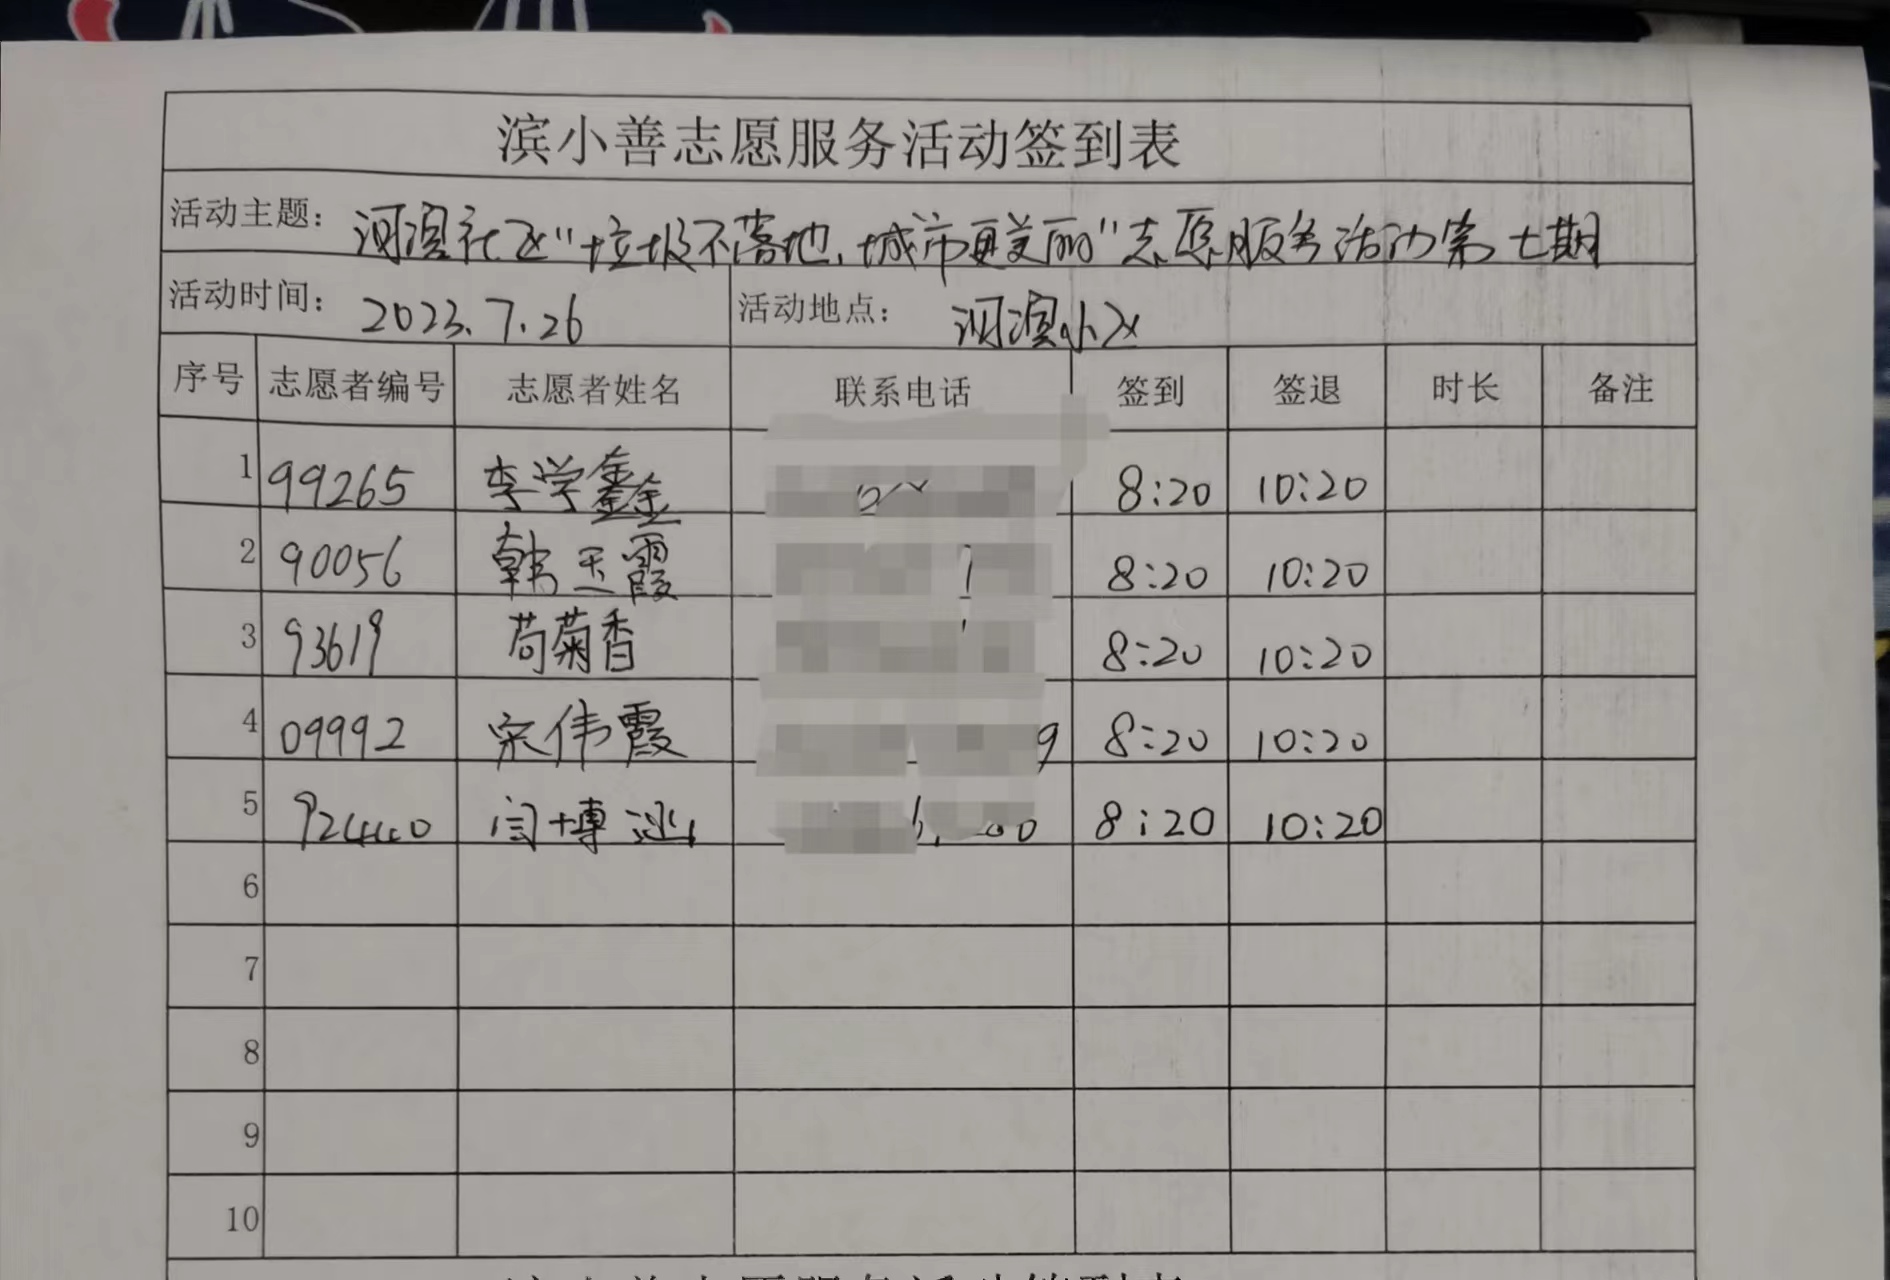 滨小善志愿服务活动签到表
活动主题: 河滨社区"垃圾不落地,城市更美丽"志愿服务活动第七期
活动时间: 2023.7.26 活动地点: 河滨小区
序号 志愿者编号 志愿者姓名 联系电话 签到 签退 时长 备注
1 99265 李学鑫 8:20 10:20
2 90056 韩玉霞 8:20 10:20
3 93619 苟菊香 8:20 10:20
4 09992 宋伟霞 9 8:20 10:20
5 92440 闫博 8:20 10:20
6
7
8
9
10
滨小善志愿服务活动签到表